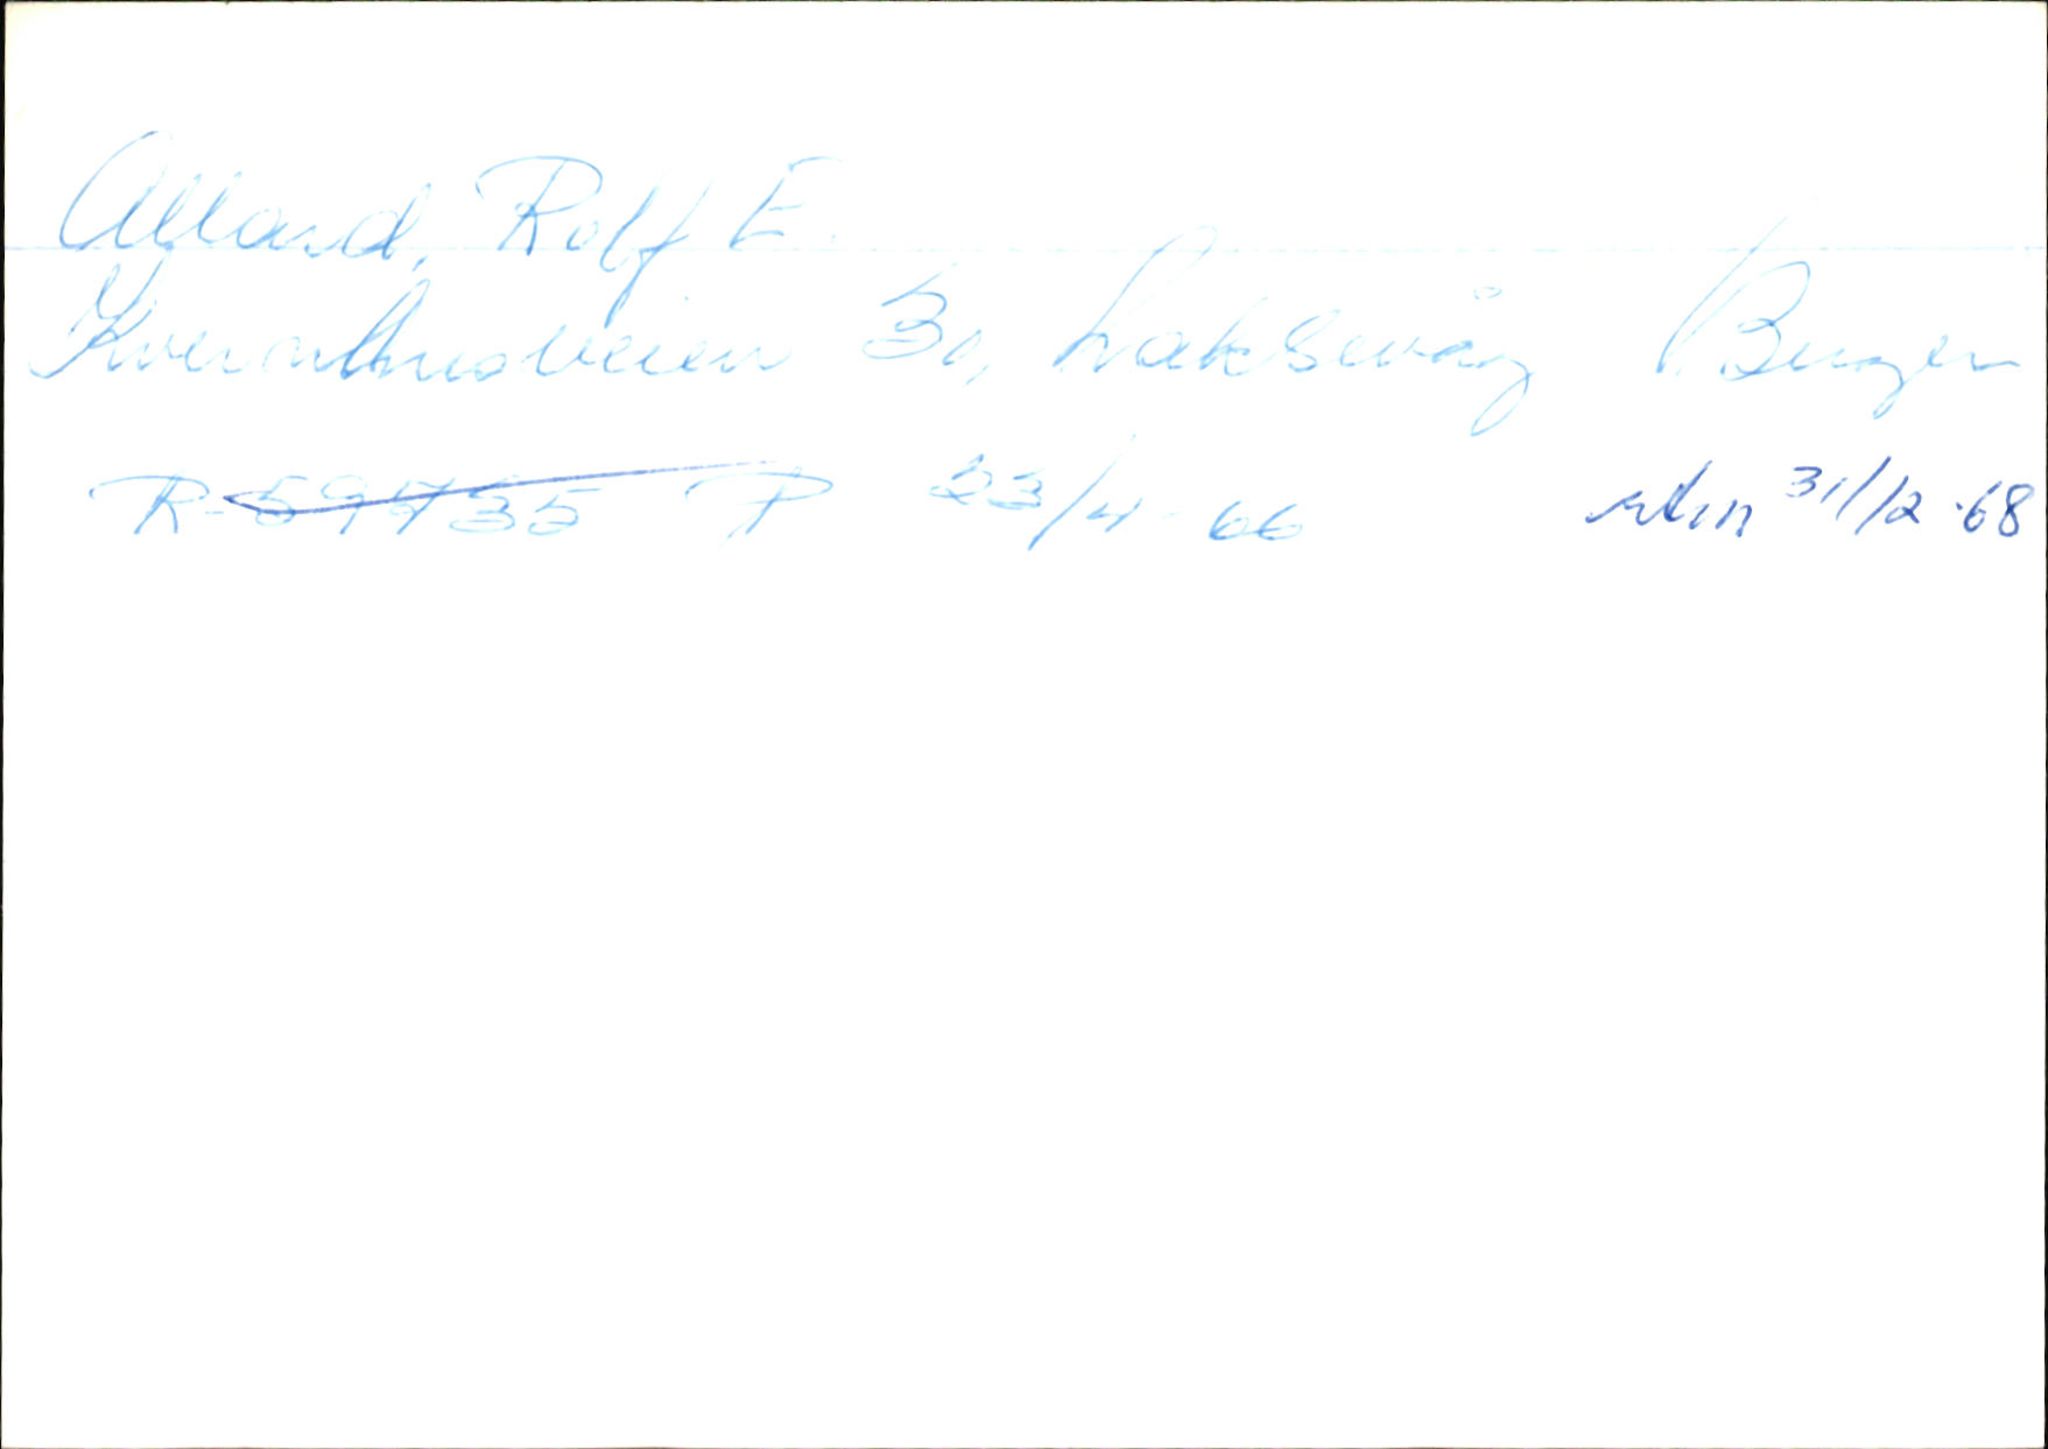 Alland, Rolf E.
Kvernhusveien 30, Laksevåg Bergen
R-59735 P 23/4-66 31/12-68